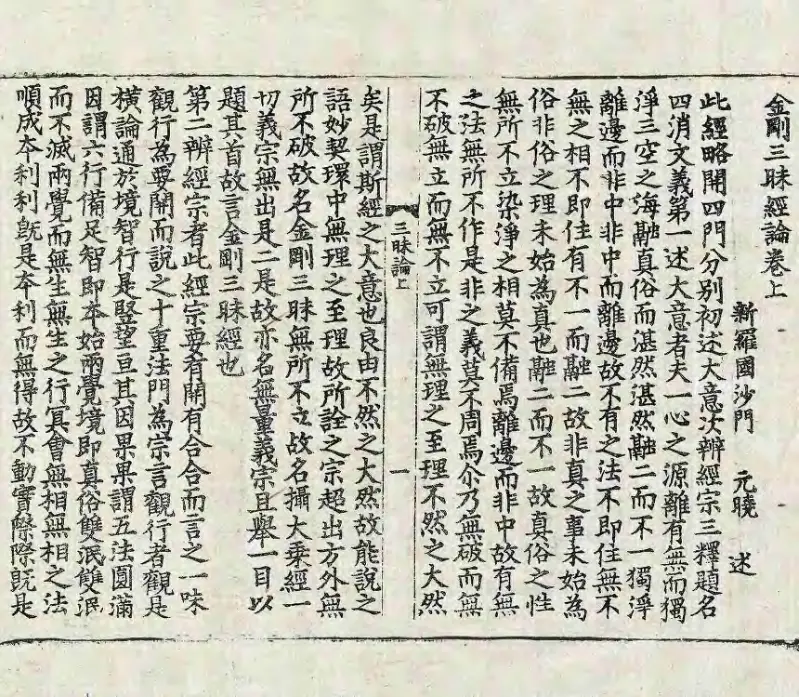 金剛三昧經論卷上
新羅國沙門　元曉　述
此經略開四門分別初述大意次辨經宗三釋題名
四消文義第一述大意者夫一心之源離有無而獨
淨三空之海融真俗而湛然湛然融二而不一獨淨
離邊而非中非中而離邊故不有之法不即住無不
無之相不即住有不一而融二故非真之事未始為
俗非俗之理未始為真也融二而不一故真俗之性
無所不立染淨之相莫不備焉離邊而非中故有無
之法無所不作是非之義莫不周焉尒乃無破而無
不破無立而無不立可謂無理之至理不然之大然
三昧論上
一
矣是謂斯經之大意也良由不然之大然故能說之
語妙契環中無理之至理故所詮之宗超出方外無
所不破故名金剛三昧無所不立故名攝大乗經一
切義宗無出是二是故亦名無量義宗且舉一目以
題其首故言金剛三昧經也
第二辨經宗者此經宗要有開有合合而言之一味
觀行為要開而說之十重法門為宗言觀行者觀是
橫論通於境智行是竪望亘其因果果謂五法圓滿
因謂六行備足智即本始兩覺境即真俗雙泯雙泯
而不滅兩覺而無生無生之行冥會無相無相之法
順成夲利利旣是夲利而無得故不動實際際旣是